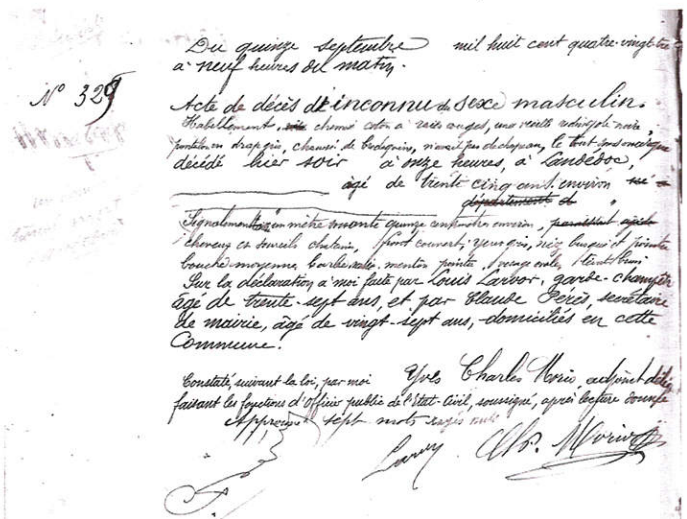 Du quinze septembre mil huit cent quatre-vingt-tre
à neuf heures du matin.
N° 329
Acte de décès d'inconnu de sexe masculin.
Habillement, chemise coton à raies rouges, une vieille noire,
pantalon en drap gris, chaussé de brodequins, n'avait pas de chapeau, le tout sans marque
décédé hier soir à onze heures, à Landédoc,
âgé de trente cinq ans environ né
département d
Signalement un mètre soixante quinze centimètres environ,
cheveux et sourcils chatain, front couvert, yeux gris, nez busqué et pointu
bouche moyenne, barbe rasée, menton pointu, visage ovale, teint brun
Sur la déclaration à moi faite par Louis Larvor, garde-champêtr
âgé de trente-sept ans, et par Claude Pérès, secrétaire
de mairie, âgé de vingt-sept ans, domiciliés en cette
Commune.
Constaté, suivant la loi, par moi Yves Charles Morio, adjoint délég
faisant les fonctions d'Officier public de l'État-Civil, soussigné, après lecture donnée
Approuvé sept mots rayés nuls
Larvor Ch. Morio